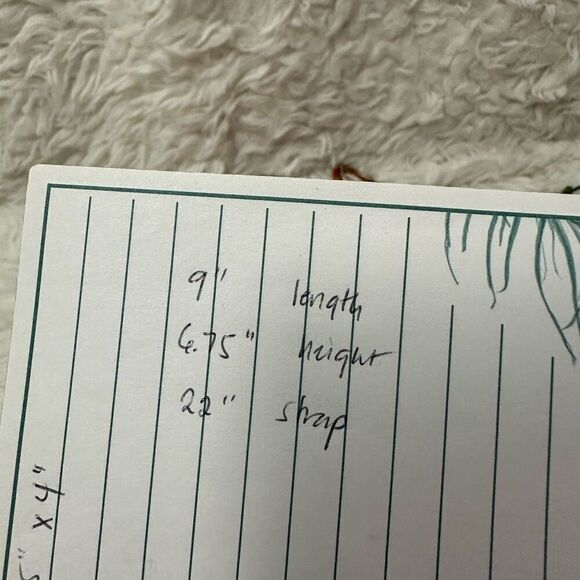 9" length
6.75" height
22" strap
x 4"